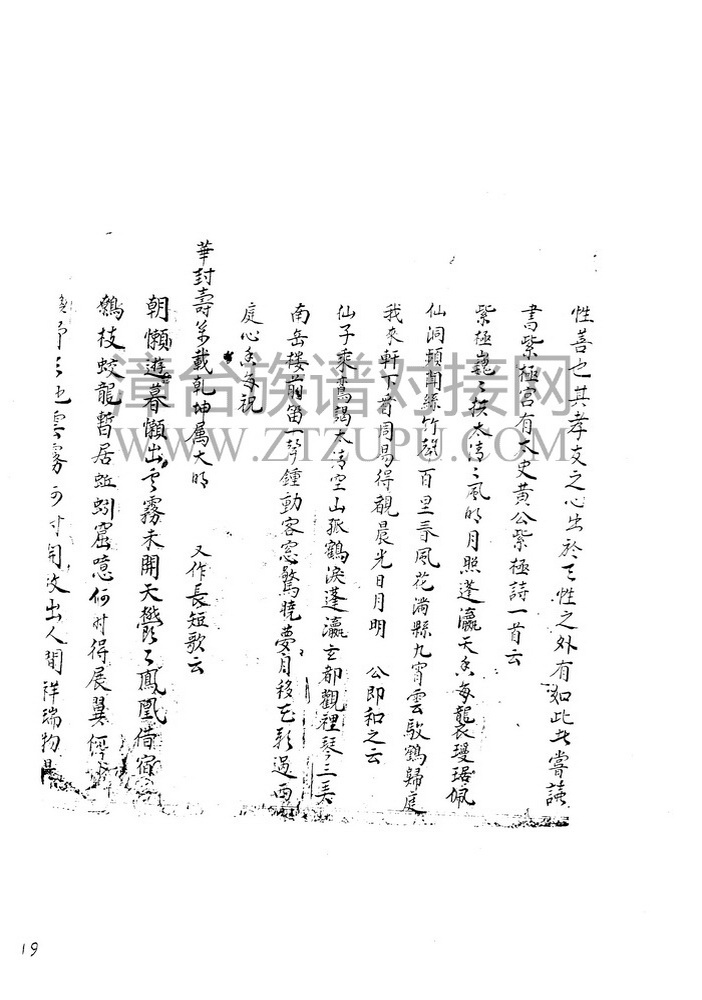 性善也其孝友之心出於天性之外有如此者嘗讀
書紫極宮有太史黃公紫極詩一首云
紫極巍々扶太清々風明月照蓬瀛天香每襲衣瓊琚佩
仙洞頻聞絲竹聲百里春風花滿縣九霄雲馭鶴歸庭
我來軒下看周易得覩晨光日月明 公即和之云
仙子乘鸞謁太清空山孤鶴淚蓬瀛玄都觀裡琴三美
南岳樓前笛一聲鍾動客窓驚曉夢月移花影過西
庭心香每祝
華封壽萬載乾坤屬大明 又作長短歌云
朝懶遊暮懶出雲霧未開天鬱々鳳凰借宿
鷦枝蛟龍暫居蚯蚓窟噫何时得展翼
雲霧 开 汝出人間祥瑞物
漳台族谱对接网
WWW.ZTZUPU.COM
19